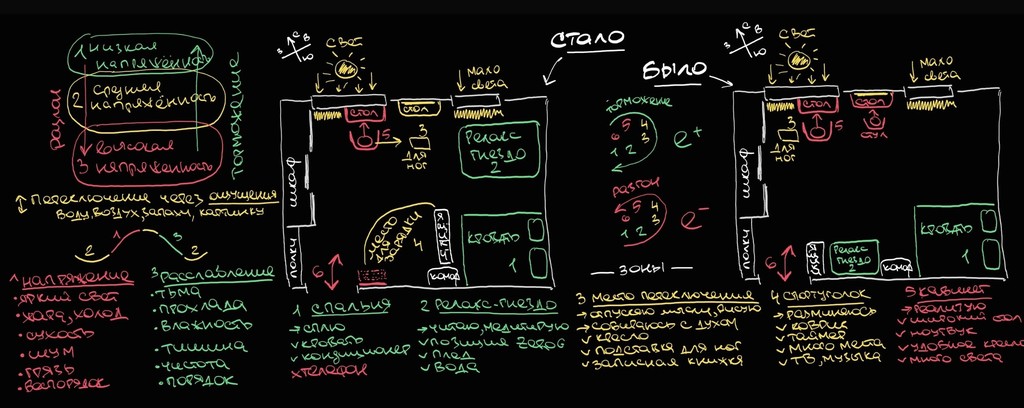 1 низкая
напряжённость
2 средняя
напряжённость
3 высокая
напряженность
разгон
торможение
↕ Переключение через ощущения
воду, воздух, запахи, картинку
1
2
3
2
1 напряжение
• яркий свет
• жара, холод
• сухость
• шум
• грязь
• беспорядок
3 расслабление
• тьма
• прохлада
• влажность
• тишина
• чистота
• порядок
Стало
З С В Ю
свет
мало
света
стол
стол
5
3
для
ног
Релакс
гнездо
2
шкаф
полки
место
для
зарядки
4
кровать
1
6
комод
Было
З С В Ю
свет
мало
света
стол
стол
5
стул
3
для
ног
шкаф
полки
кровать
1
6
Релакс
гнездо
2
комод
торможение
5 4
6 3
1 2
e+
разгон
5 4
6 3
1 2
e-
— зоны —
1 спальня
→ сплю
✓ кровать
✓ кондиционер
х телефон
2 Релакс-гнездо
→ читаю, медитирую
✓ позиция Zero G
✓ плед
✓ вода
3 Место переключения
→ отпускаю мысли,
→ собираюсь с духом
✓ кресло
✓ подставка для ног
✓ записная книжка
4 Спортуголок
→ разминаюсь
✓ коврик
✓ таймер
✓ много места
✓ ТВ, музыка
5 Кабинет
✓ широкий стол
✓ ноутбук
✓ удобное кресло
✓ много света